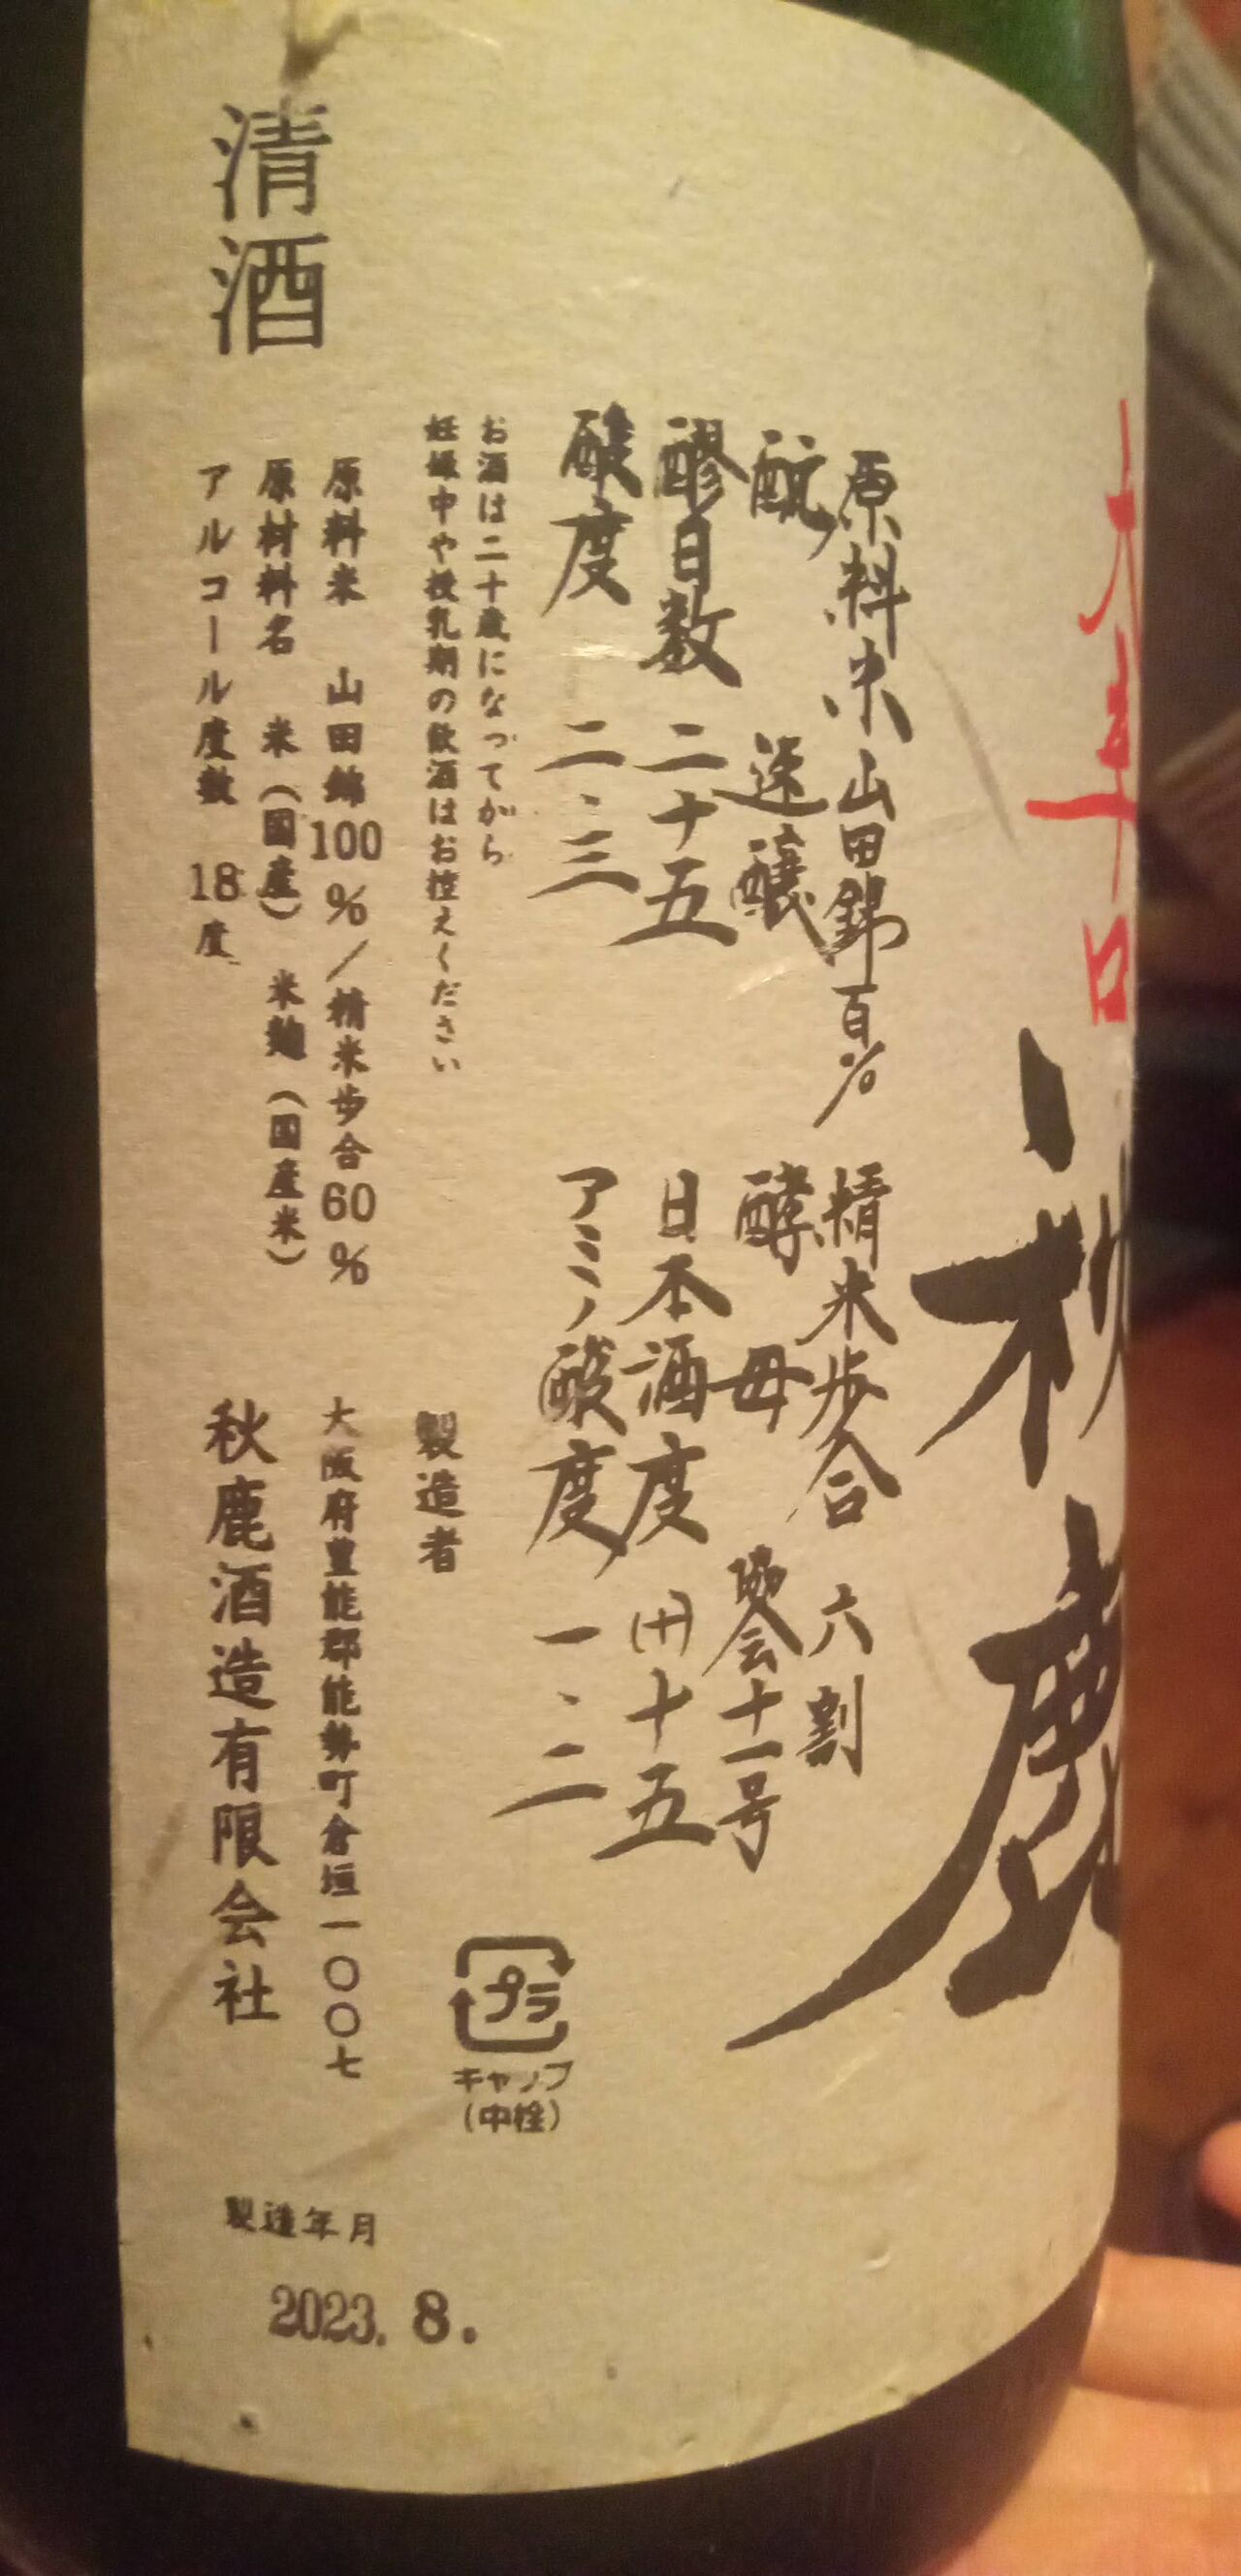 大辛口
秋鹿
原料米 山田錦 百%
精米歩合 六割
酛 速醸
酵母 協会十一号
醪日数 二十五
日本酒度 (+)十五
酸度 二.三
アミノ酸度 一.二
お酒は二十歳になってから
妊娠中や授乳期の飲酒はお控えください
原料米 山田錦100%/精米歩合60%
原材料名 米(国産) 米麹(国産米)
アルコール度数 18度
清酒
製造者
大阪府豊能郡能勢町倉垣一〇〇七
秋鹿酒造有限会社
プラ
キャップ
(中栓)
製造年月
2023. 8.